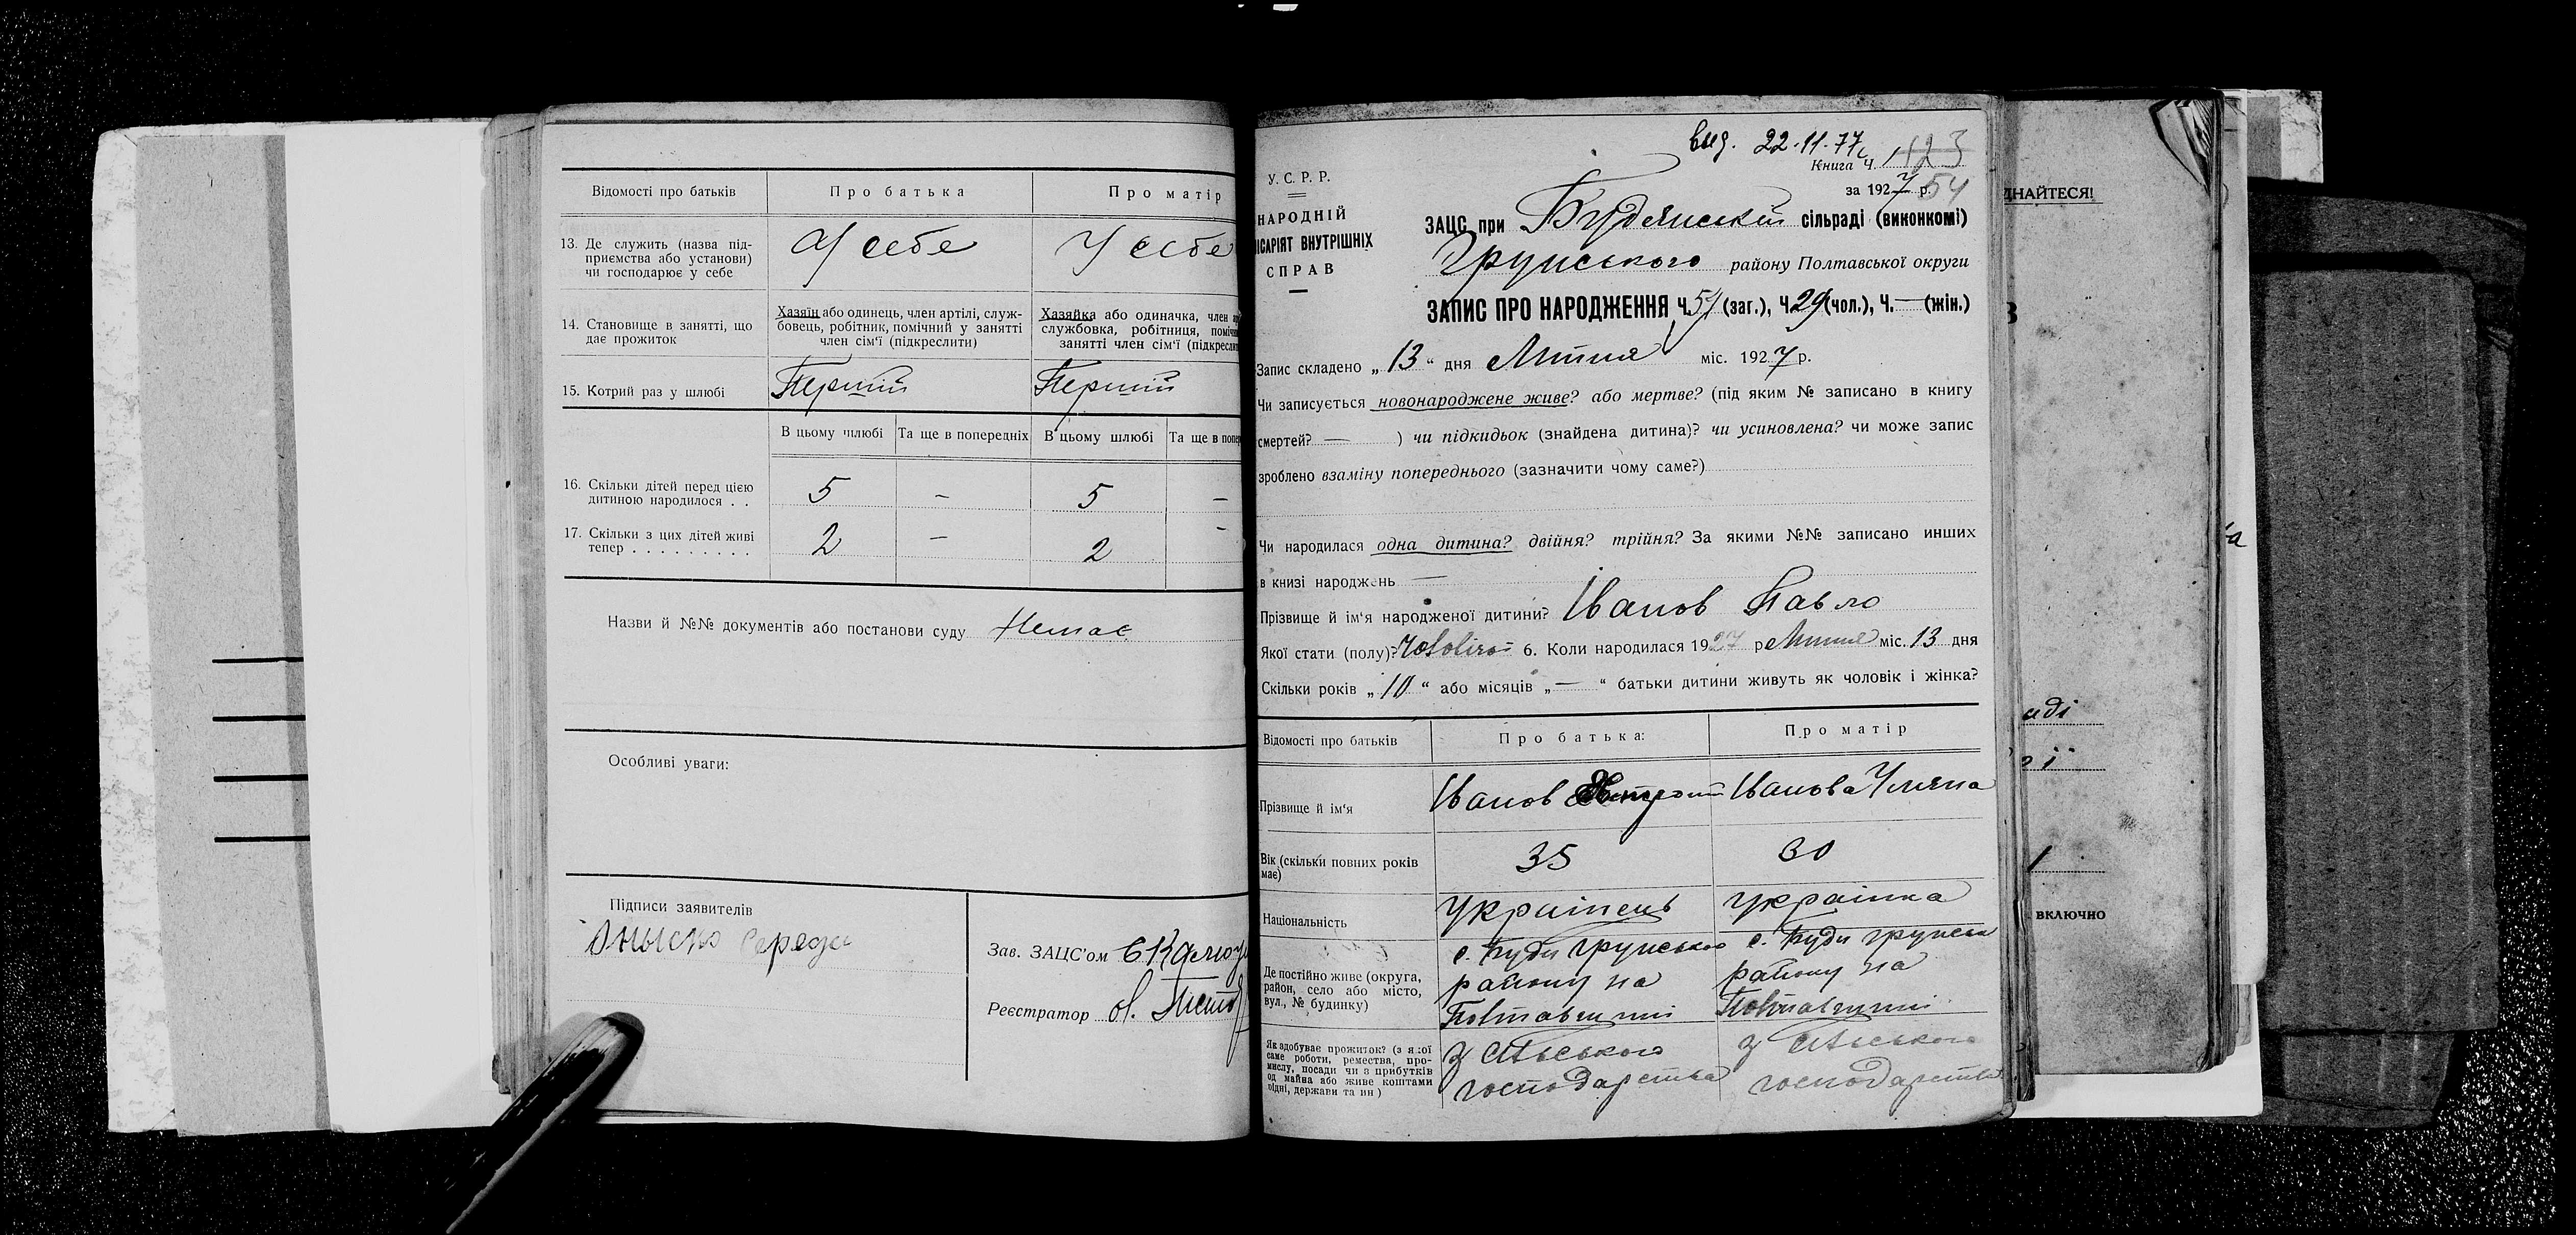 Відомості про батьків
Про батька
Про матір
13. Де служить (назва під-
приємства або установи)
чи господарює у себе
У себе
У себе
14. Становище в занятті, що
дає прожиток
Хазяїн або одинець, член артілі, служ-
бовець, робітник, помічний у занятті
член сім'ї (підкреслити)
Хазяйка або одиначка, член
службовка, робітниця,
занятті член сім'ї
15. Котрий раз у шлюбі
Перший
Перший
В цьому шлюбі
Та ще в попередніх
В цьому шлюбі
Та ще в
16. Скільки дітей перед цією
дитиною народилося . .
5
–
5
–
17. Скільки з цих дітей живі
тепер . . . . . . . . .
2
–
2
-
Назви й №№ документів або постанови суду Немає
Особливі уваги:
Підписи заявителів
Зав. ЗАЦС'ом
Реєстратор
вид. 22·11·77
Книга Ч. 123
за 1927 р. 54
У. С. Р. Р.
НАРОДНІЙ
ВНУТРІШНІХ
СПРАВ
ЗАЦС при Будянській сільраді (виконкомі)
Грунського району Полтавської округи
ЗАПИС ПРО НАРОДЖЕННЯ Ч. 54 (заг.), Ч. 29 (чол.), Ч. — (жін.)
Запис складено „ 13 “ дня Липня міс. 1927 р.
Чи записується новонароджене живе? або мертве? (під яким № записано в книгу
смертей? — ) чи підкидьок (знайдена дитина)? чи усиновлена? чи може запис
зроблено взаміну попереднього (зазначити чому саме?)
Чи народилася одна дитина? двійня? трійня? За якими №№ записано инших
в книзі народжень —
Прізвище й ім'я народженої дитини? Іванов Павло
Якої стати (полу)? Чоловічої 6. Коли народилася 1927 р Липня міс. 13 дня
Скільки років „ 10 “ або місяців „ — “ батьки дитини живуть як чоловік і жінка?
Відомості про батьків
Про батька:
Про матір
Прізвище й ім'я
Іванов
Іванова Уляна
Вік (скільки повних років
має)
35
30
Національність
Українець
українка
Де постійно живе (округа,
район, село або місто,
вул., № будинку)
с. Буди Грунського
району на
Полтавщині
с. Буди Грунськ
району на
Полтавщині
Як здобуває прожиток? (з якої
саме роботи, ремества, про-
мислу, посади чи з прибутків
од майна або живе коштами
рідні, держави та ин)
З сільського
господарства
З сільського
господарства
ДНАЙТЕСЯ!
аді
включно